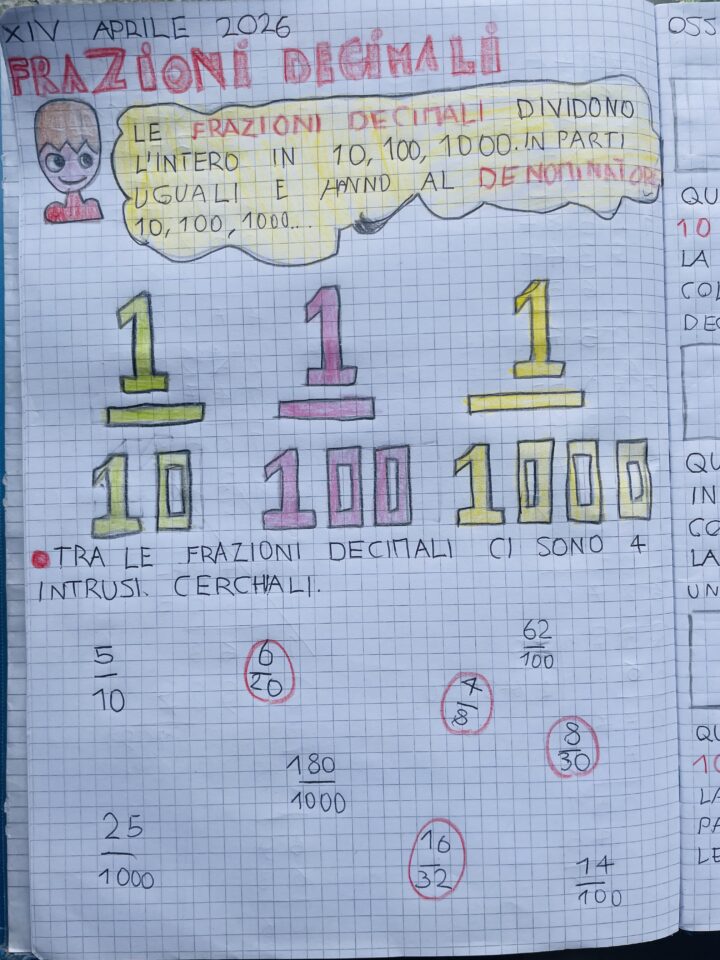 XIV APRILE 2026
FRAZIONI DECIMALI
LE FRAZIONI DECIMALI DIVIDONO
L'INTERO IN 10, 100, 1000. IN PARTI
UGUALI E HANNO AL DENOMINATORE
10, 100, 1000....
1 1 1
10 100 1000
TRA LE FRAZIONI DECIMALI CI SONO 4
INTRUSI. CERCHIALI.
5/10
6/20
62/100
4/8
8/30
180/1000
25/1000
16/32
14/100
QU
10
LA
DEC
QU
IN
LA
UN
QU
10
LA
PA
LE